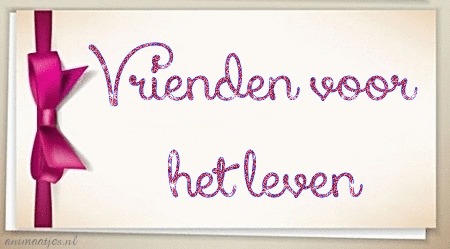 Vrienden voor
het leven
animaatjes.nl